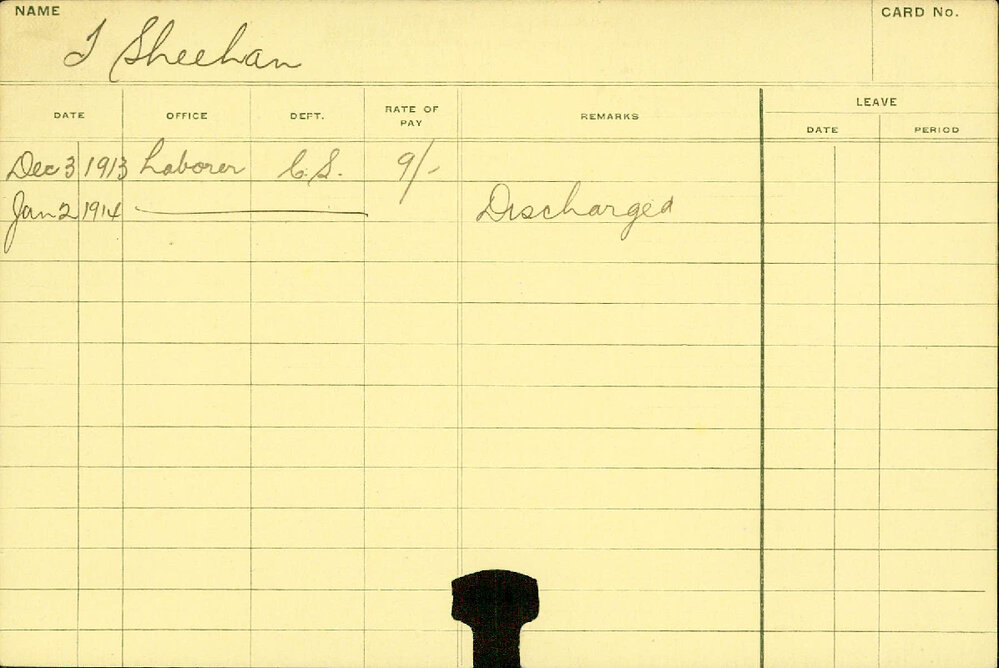 NAME CARD No.
J Sheehan
DATE OFFICE DEPT. RATE OF PAY REMARKS LEAVE
DATE PERIOD
Dec 3 1913 Laborer C.S. 9/-
Jan 2 1914 Discharged